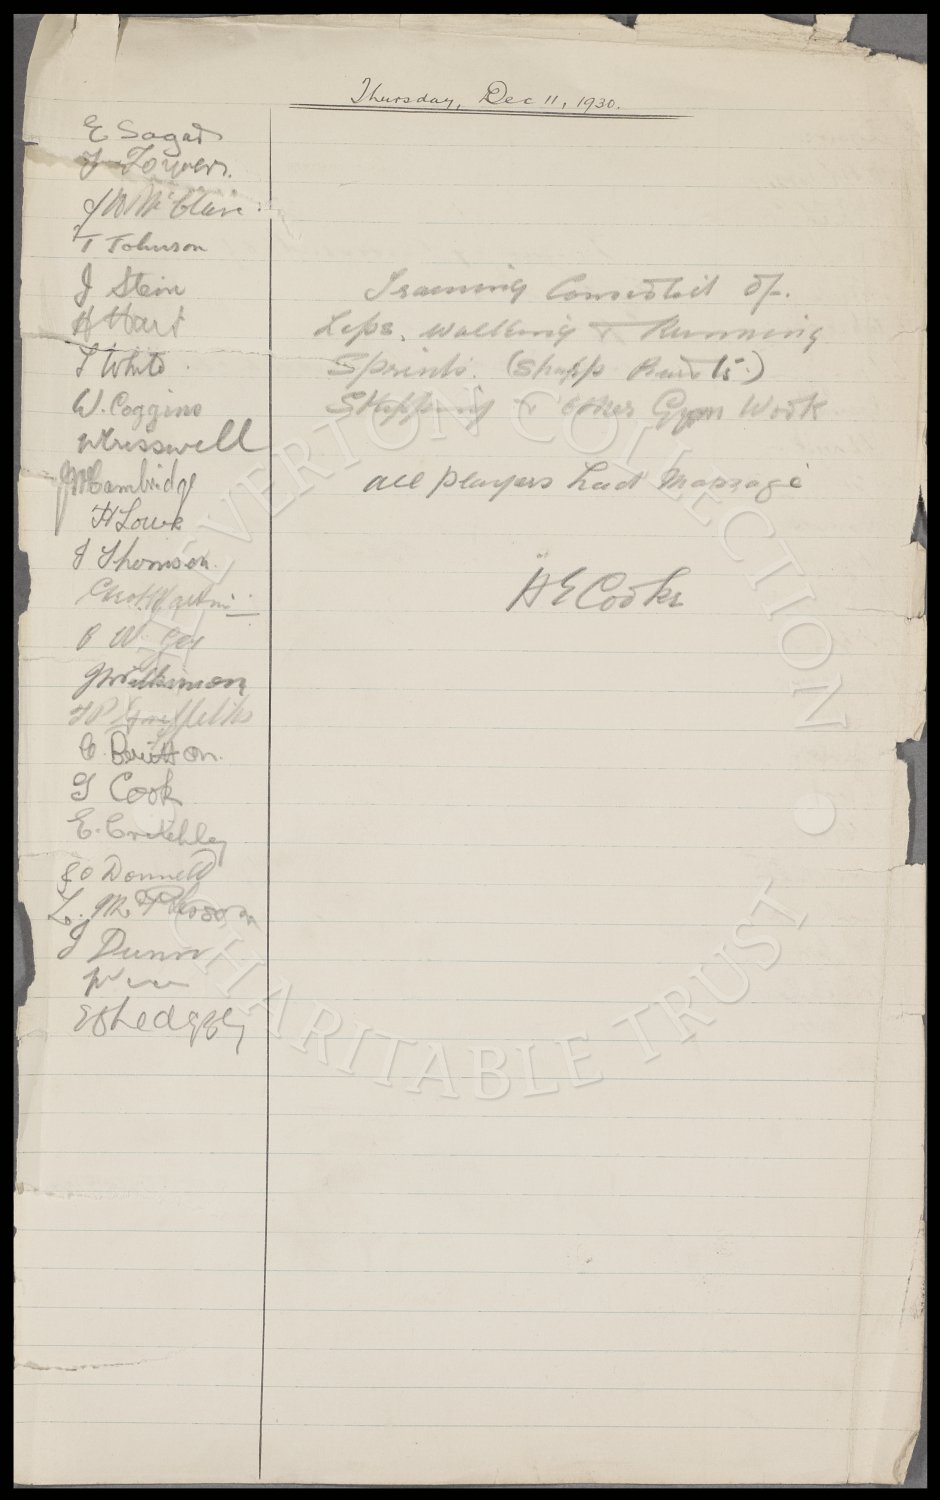 Thursday, Dec 11, 1930.
E Sagar
J Towers.
J W McClure
T Johnson
J Stein
H Hart
T White.
W. Coggins
W Cresswell
J Cambridge
H Lowe
J Thomson.
C W Gee
J Wilkinson
T P Griffiths
C. Britton.
G Cook
E. Critchley
J O Donnell
L. McPherson
J Dunn
Training Consisted of.
Laps. Walking & Running
Sprints. (Sharp Bursts.)
Skipping & other Gym Work
All players had Massage
H E Cooke
THE EVERTON COLLECTION • CHARITABLE TRUST •